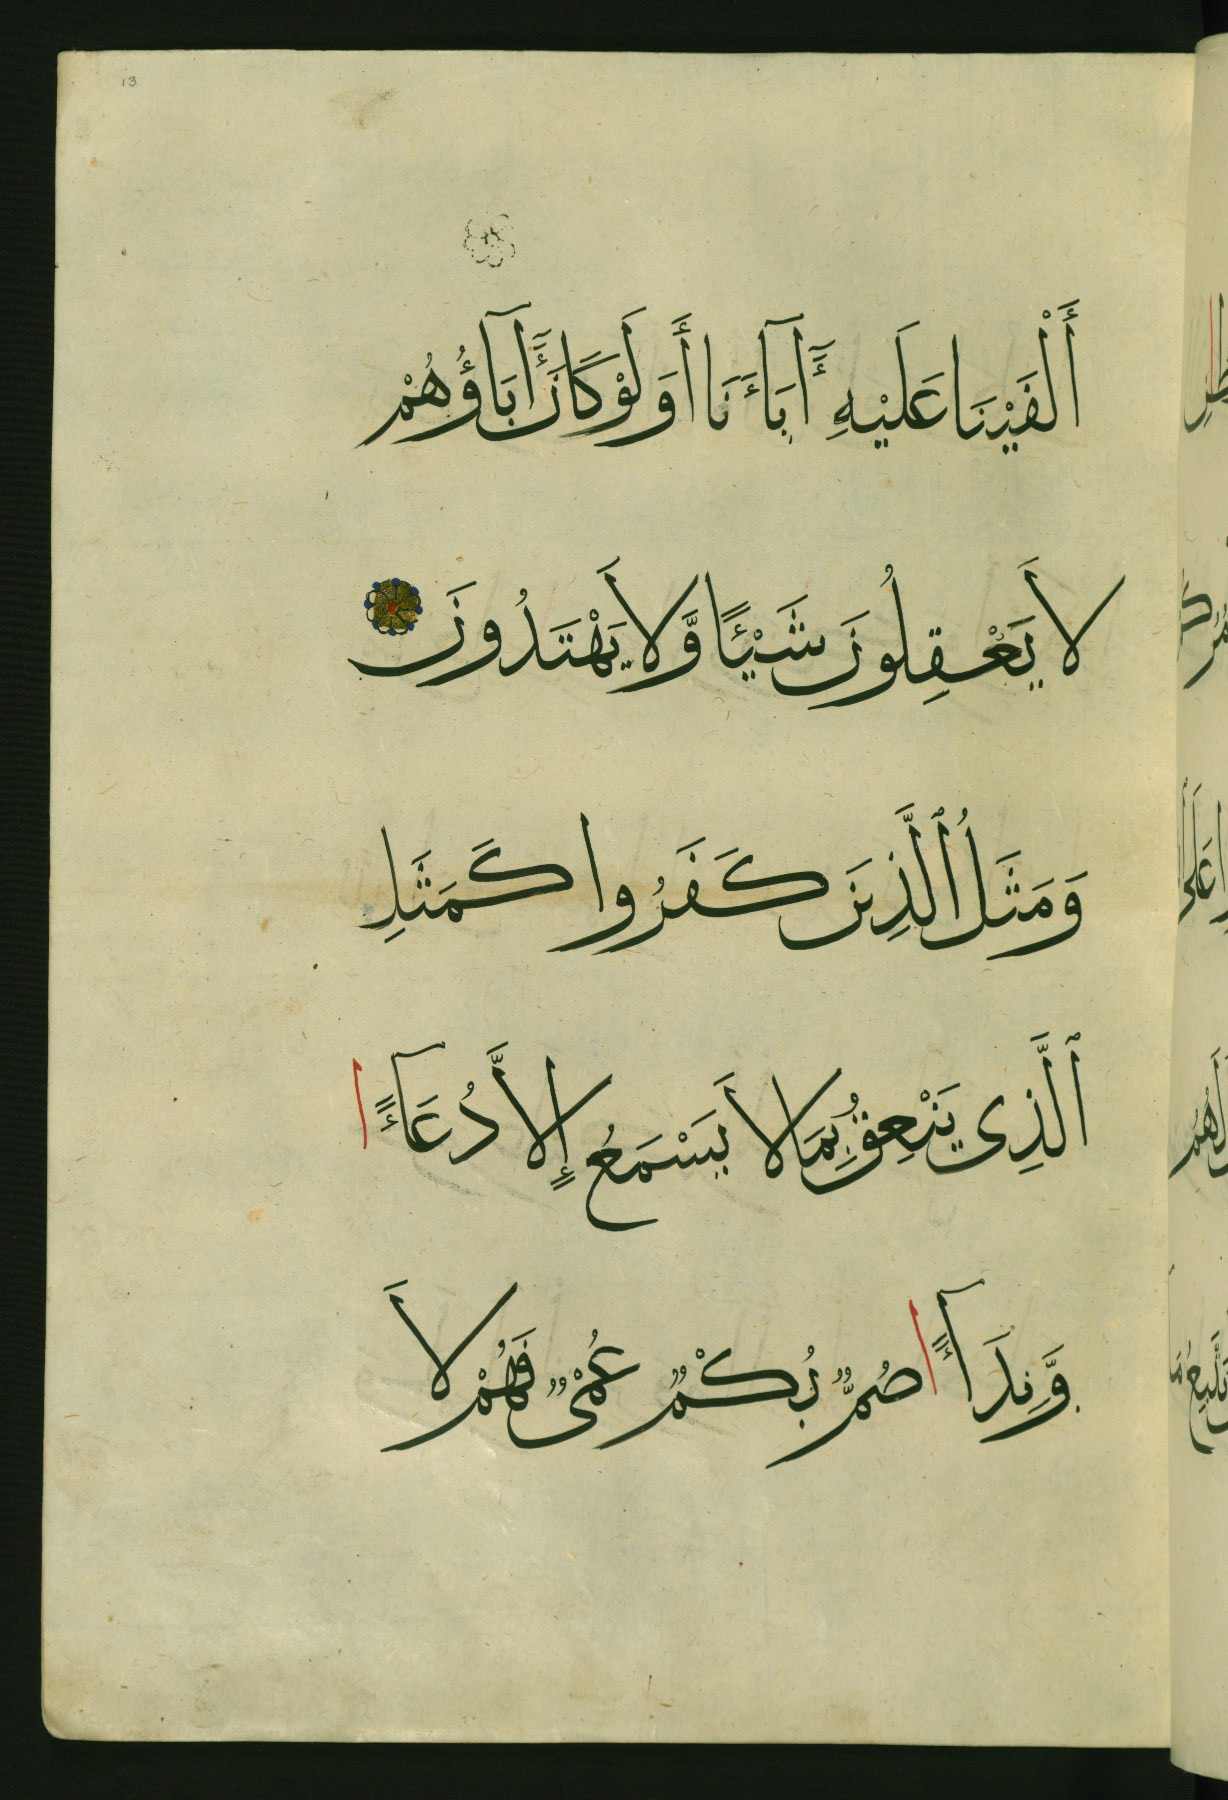 13
أَلْفَيْنَا عَلَيْهِ ءَابَآءَنَا أَوَلَوْ كَانَ ءَابَآؤُهُمْ
لَا يَعْقِلُونَ شَيْئًا وَّلَا يَهْتَدُونَ
وَمَثَلُ ٱلَّذِينَ كَفَرُوا كَمَثَلِ
ٱلَّذِى يَنْعِقُ بِمَا لَا يَسْمَعُ إِلَّا دُعَآءً
وَّنِدَآءً صُمٌّ بُكْمٌ عُمْىٌ فَهُمْ لَا